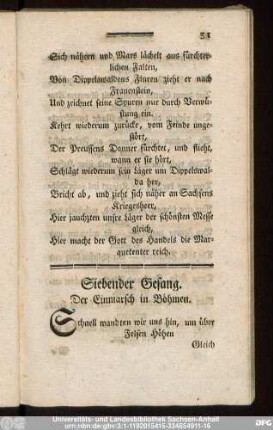 33
Sich nähern und Mars lächelt aus fürchter-
lichen Falten,
Von Dippelswaldens Fluren zieht er nach
Frauenstein,
Und zeichnet seine Spuren nur durch Verwü-
stung ein.
Kehrt wiederum zurücke, vom Feinde unge-
stört,
Der Preussens Donner fürchtet, und flieht,
wann er sie hört,
Schlägt wiederum sein Lager um Dippelswal-
da her,
Bricht ab, und zieht sich näher an Sachsens
Kriegesheer,
Hier jauchzten unsre Läger der schönsten Messe
gleich,
Hier macht der Gott des Handels die Mar-
quetenter reich.
Siebender Gesang.
Der Einmarsch in Böhmen.
Schnell wandten wir uns hin, um über
Felsen Höhen
Gleich
Universitäts- und Landesbibliothek Sachsen-Anhalt
urn:nbn:de:gbv:3:1-1192015415-334854911-16
DFG